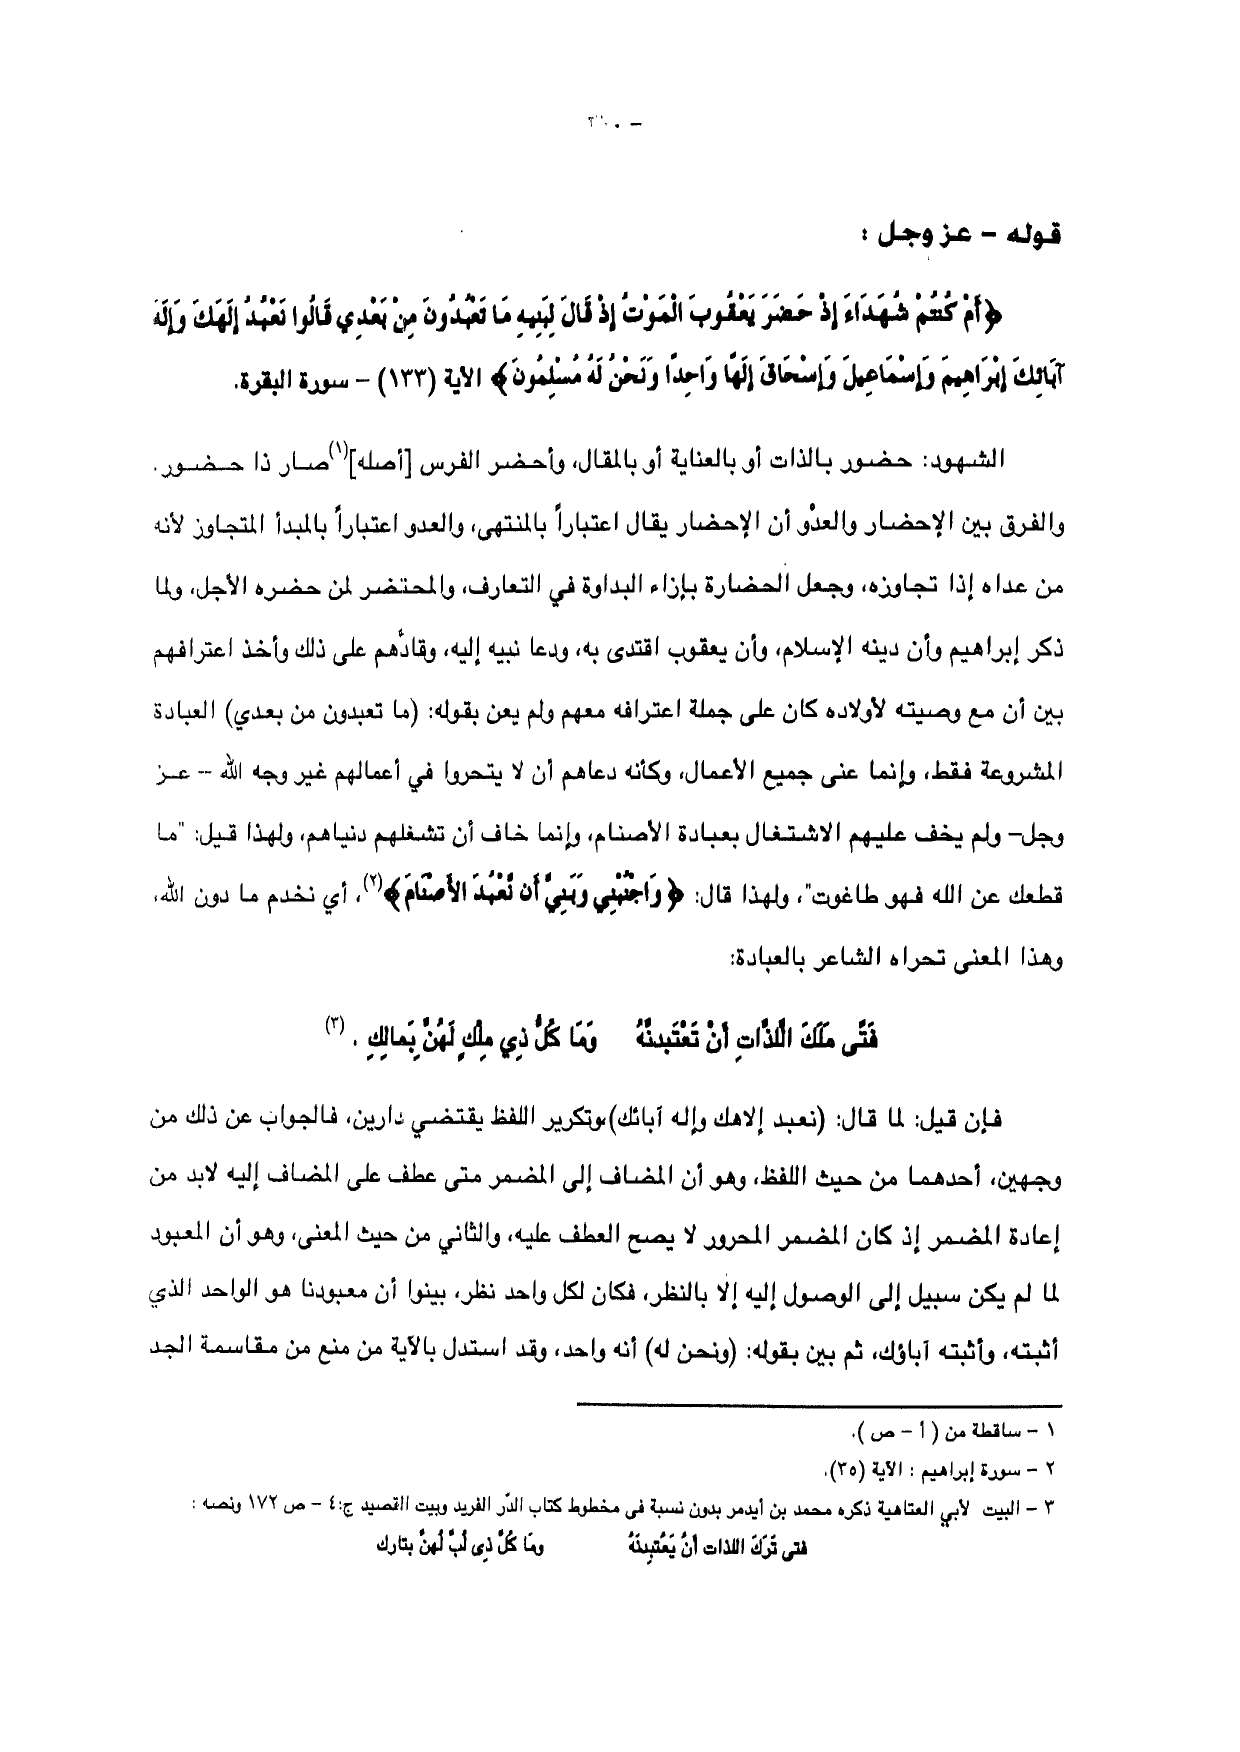 قوله – عز وجل :
﴿أَمْ كُنتُمْ شُهَدَاءَ إِذْ حَضَرَ يَعْقُوبَ الْمَوْتُ إِذْ قَالَ لِبَنِيهِ مَا تَعْبُدُونَ مِنْ بَعْدِي قَالُوا نَعْبُدُ إِلَهَكَ وَإِلَهَ
آبَائِكَ إِبْرَاهِيمَ وَإِسْمَاعِيلَ وَإِسْحَاقَ إِلَهًا وَاحِدًا وَنَحْنُ لَهُ مُسْلِمُونَ﴾ الآية (١٣٣) – سورة البقرة.
الشهود: حضور بالذات أو بالعناية أو بالمقال، وأحضر الفرس [أصله](١)صار ذا حضور.
والفرق بين الإحضار والعدُو أن الإحضار يقال اعتباراً بالمنتهى، والعدو اعتباراً بالمبدأ المتجاوز لأنه
من عداه إذا تجاوزه، وجعل الحضارة بإزاء البداوة في التعارف، والمحتضر لمن حضره الأجل، ولما
ذكر إبراهيم وأن دينه الإسلام، وأن يعقوب اقتدى به، ودعا نبيه إليه، وقادُهم على ذلك وأخذ اعترافهم
بين أن مع وصيته لأولاده كان على جملة اعترافه معهم ولم يعن بقوله: (ما تعبدون من بعدي) العبادة
المشروعة فقط، وإنما عنى جميع الأعمال، وكأنه دعاهم أن لا يتحروا في أعمالهم غير وجه الله – عز
وجل– ولم يخف عليهم الاشتغال بعبادة الأصنام، وإنما خاف أن تشغلهم دنياهم، ولهذا قيل: "ما
قطعك عن الله فهو طاغوت"، ولهذا قال: ﴿وَاجْنُبْنِي وَبَنِيَّ أَن نَّعْبُدَ الأَصْنَامَ﴾(٢)، أي نخدم ما دون الله،
وهذا المعنى تحراه الشاعر بالعبادة:
فَتًى مَلَكَ اللَّذَّاتِ أَنْ تَعْتَبِدنَّهُ وَمَا كُلُّ ذِي مِلْكٍ لَهُنَّ بِمالِكِ . (٣)
فإن قيل: لما قال: (نعبد إلاهك وإله آبائك)،وتكرير اللفظ يقتضي دارين، فالجواب عن ذلك من
وجهين، أحدهما من حيث اللفظ، وهو أن المضاف إلى المضمر متى عطف على المضاف إليه لابد من
إعادة المضمر إذ كان المضمر المجرور لا يصح العطف عليه، والثاني من حيث المعنى، وهو أن المعبود
لما لم يكن سبيل إلى الوصول إليه إلا بالنظر، فكان لكل واحد نظر، بينوا أن معبودنا هو الواحد الذي
أثبته، وأثبته آباؤك، ثم بين بقوله: (ونحن له) أنه واحد، وقد استدل بالآية من منع من مقاسمة الجد
١ – ساقطة من ( أ – ص ).
٢ – سورة إبراهيم : الآية (٣٥).
٣ – البيت لأبي العتاهية ذكره محمد بن أيدمر بدون نسبة فى مخطوط كتاب الدَّر الفريد وبيت القصيد ج:٤ – ص ١٧٢ ونصه :
فتى تَرَكَ اللذات أنْ يَعْتَبِدنَهُ وَمَا كُلُّ ذِي لُبٍّ لَهنَّ بتارك